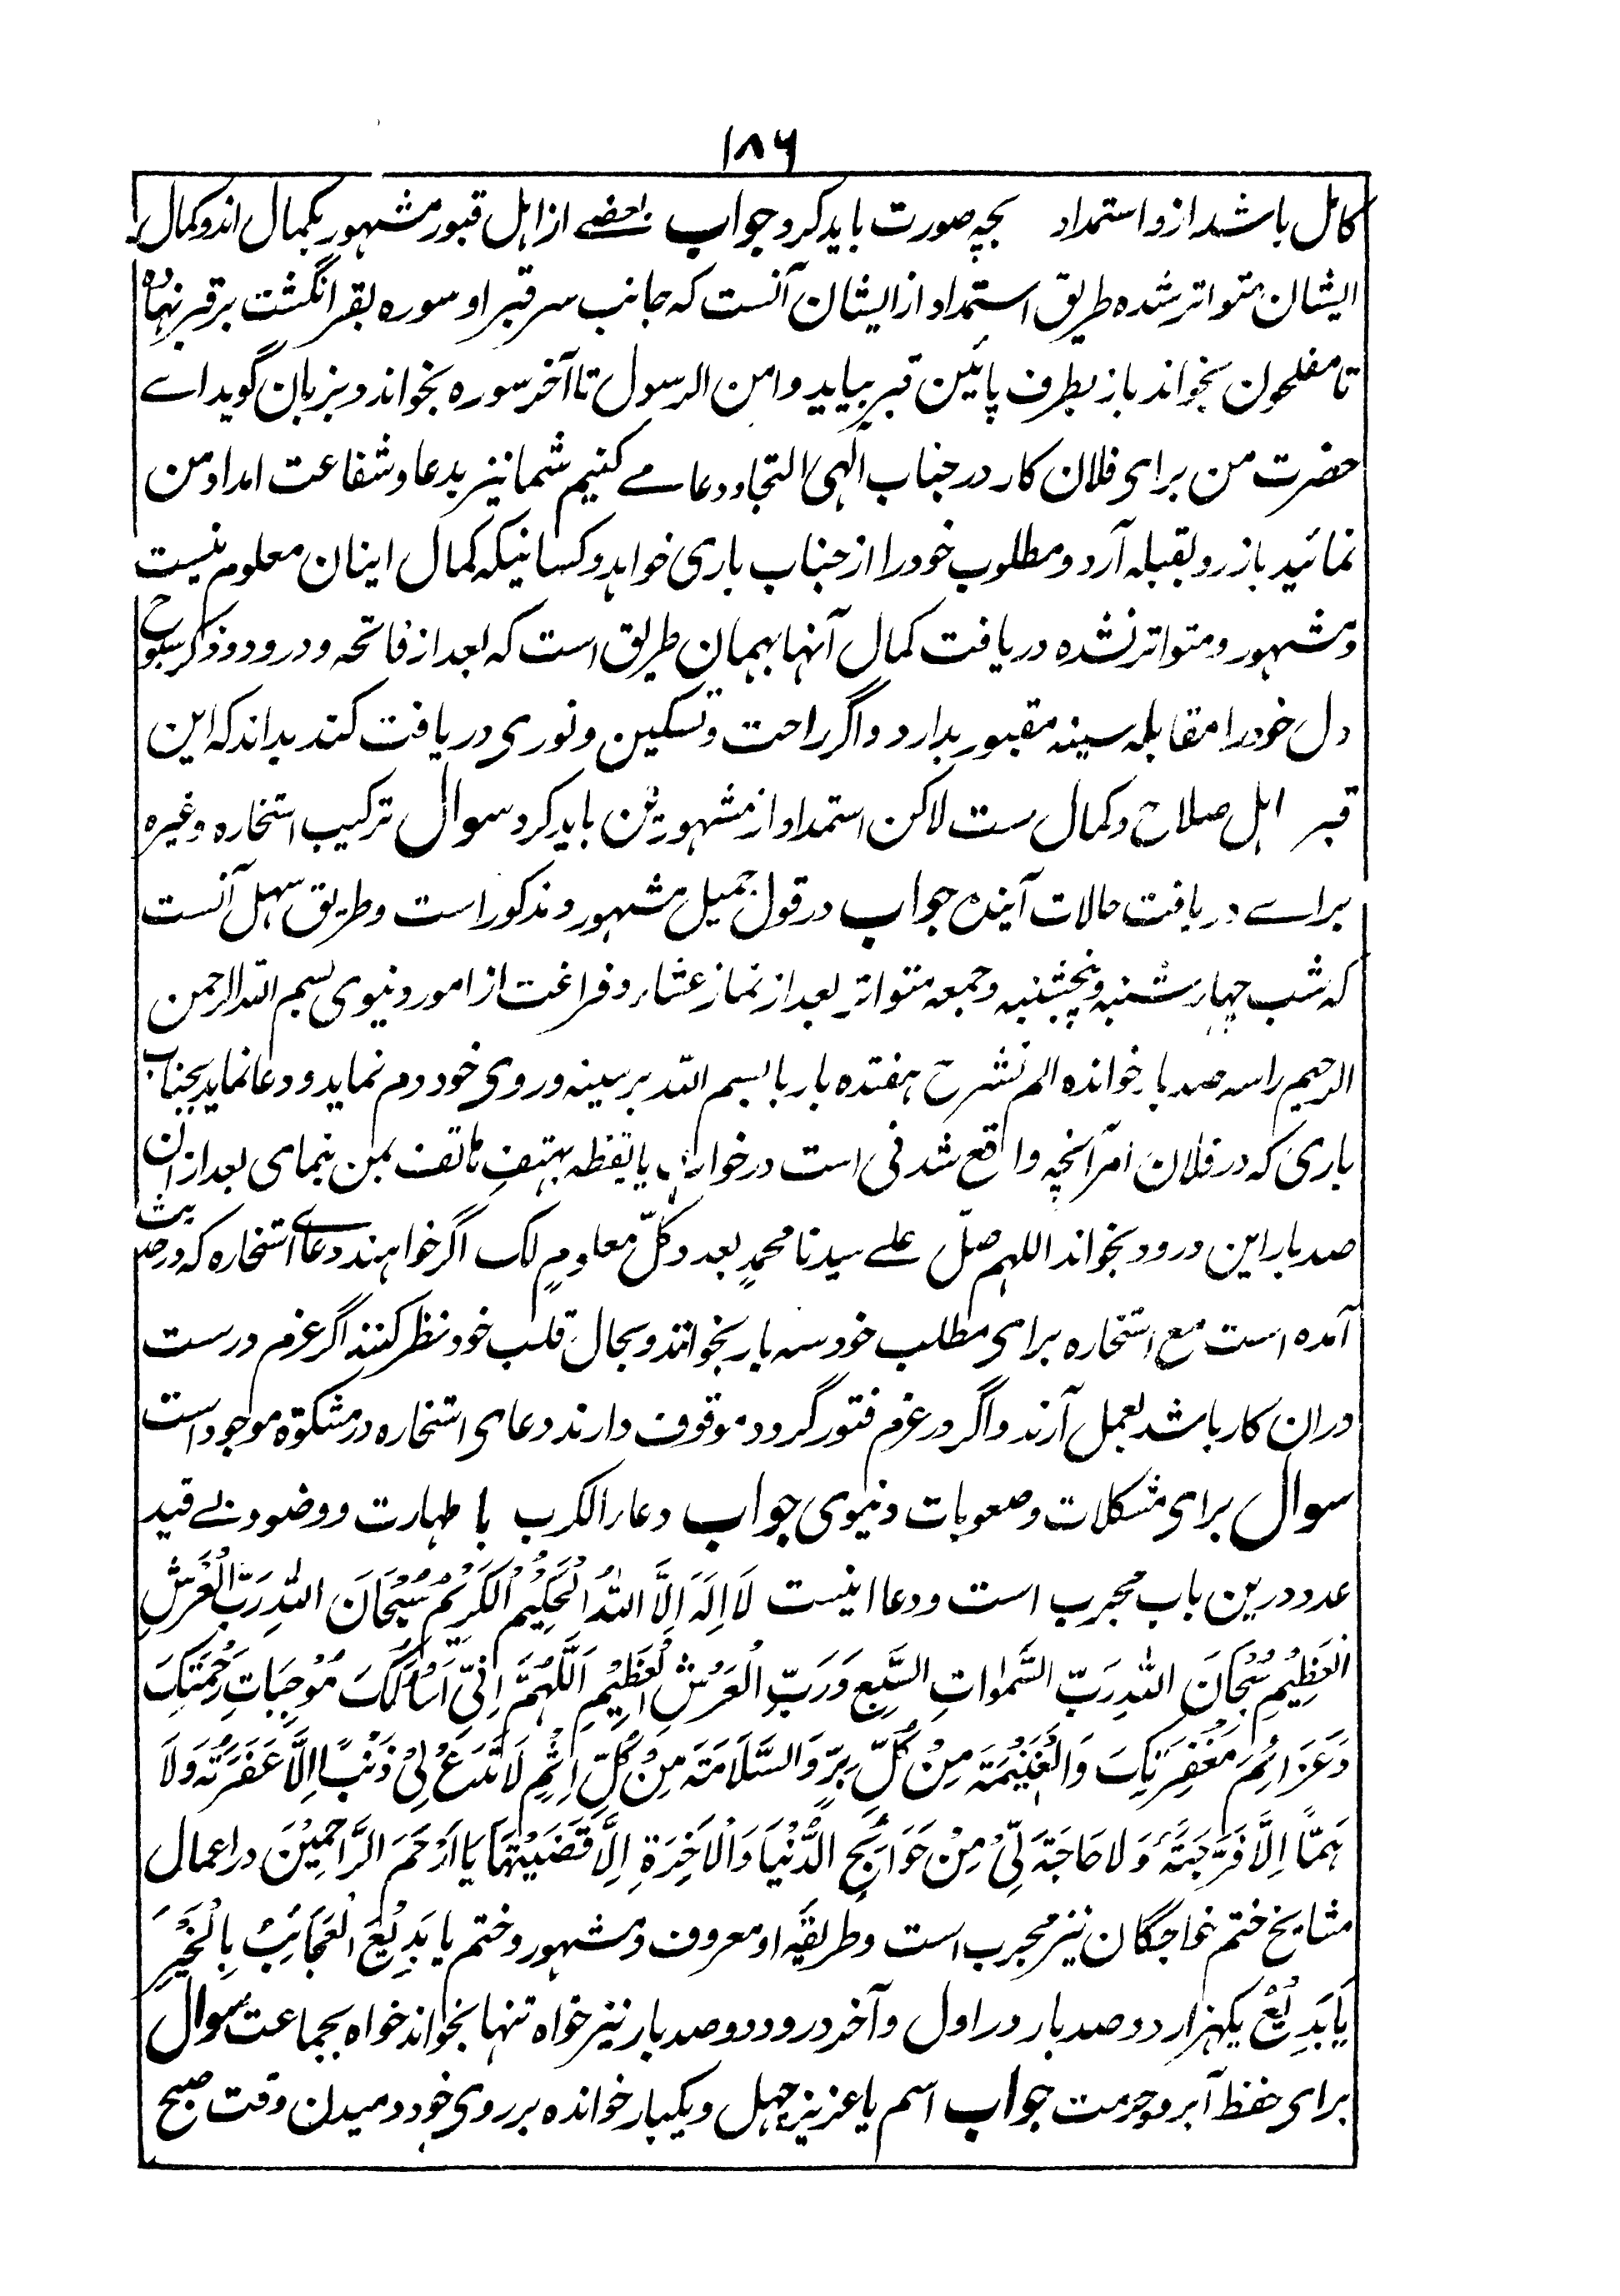 ۱۸۶
کامل باشد ازو استمداد بچه صورت باید کرد جواب بعضے از اہل قبور مشہور بکمال اند و کمال
ایشان متواتر شدہ طریق استمداد از ایشان آنست کہ جانب سر قبر او سورہ بقر انگشت بر قبر نہادہ
تا مفلحون بخواند باز بطرف پائین قبر بیاید و امن الرسول تا آخر سورہ بخواند و بزبان گوید اے
حضرت من برای فلان کار در جناب الٰہی التجا و دعا مے کنیم شما نیز بدعا و شفاعت امداد من
نمائید باز رو بقبلہ آرد و مطلوب خود را از جناب باری خواہد و کسانیکہ کمال اینان معلوم نیست
و مشہور و متواتر نشدہ دریافت کمال آنہا بہمان طریق است کہ بعد از فاتحہ و درود و ذکر سبوح
دل خود را مقابلہ سینہ مقبور بدارد و اگر راحت و تسکین و نوری دریافت کند بداند کہ این
قبر اہل صلاح و کمال ست لاکن استمداد از مشہورین باید کرد سوال ترکیب استخارہ وغیرہ
براے دریافت حالات آیندہ جواب در قول جمیل مشہور و مذکور است و طریق سہل آنست
کہ شب چہار شنبہ و پنجشنبہ و جمعہ متواتر بعد از نماز عشاء و فراغت از امور دنیوی بسم اللہ الرحمن
الرحیم را سہ صد بار خواندہ الم نشرح ہفتدہ بار با بسم اللہ بر سینہ و روی خود دم نماید و دعا نماید بجناب
باری کہ در فلان امر آنچہ واقع شدنی است در خواب یا یقظہ بہتفِ ہاتف بمن بنمای بعد ازان
صد بار این درود بخواند اللہم صلّ علے سیدنا محمدٍ بعدد کلّ معلومٍ لک اگر خواہند دعاے استخارہ کہ در حدیث
آمدہ است مع استخارہ برای مطلب خود سہ بار بخوانند و بحال قلب خود نظر کنند اگر عزم درست
دران کار باشد بعمل آرند و اگر در عزم فتور گردد موقوف دارند دعای استخارہ در مشکوٰۃ موجود است
سوال برای مشکلات و صعوبات دنیوی جواب دعاء الکرب با طہارت و وضو و بے قید
عدد درین باب مجرب است و دعا اینست لَا اِلٰہَ اِلَّا اللہُ الْحَکِیْمُ الْکَرِیْمُ سُبْحَانَ اللہِ رَبِّ الْعَرْشِ
الْعَظِیْمِ سُبْحَانَ اللہِ رَبِّ السَّمٰواتِ السَّبْعِ وَ رَبِّ الْعَرْشِ الْعَظِیْمِ اَللّٰہُمَّ اِنِّیْ اَسْاَلُکَ مُوْجِبَاتِ رَحْمَتِکَ
وَ عَزَائِمَ مَغْفِرَتِکَ وَ الْغَنِیْمَۃَ مِنْ کُلِّ بِرٍّ وَ السَّلَامَۃَ مِنْ کُلِّ اِثْمٍ لَا تَدَعْ لِیْ ذَنْبًا اِلَّا غَفَرْتَہٗ وَ لَا
ہَمًّا اِلَّا فَرَّجْتَہٗ وَ لَا حَاجَۃً لِّیْ مِنْ حَوَائِجِ الدُّنْیَا وَ الْاٰخِرَۃِ اِلَّا قَضَیْتَہَا یَا اَرْحَمَ الرَّاحِمِیْنَ در اعمال
مشایخ ختم خواجگان نیز مجرب است و طریقہ او معروف و مشہور و ختم یَا بَدِیْعَ الْعَجَائِبِ بِالْخَیْرِ
یَا بَدِیْعُ یکہزار دو صد بار در اول و آخر درود دو صد بار نیز خواہ تنہا بخواند خواہ بجماعت سوال
برای حفظ آبرو و حرمت جواب اسم یا عزیز چہل و یکبار خواندہ بر روی خود دمیدن وقت صبح